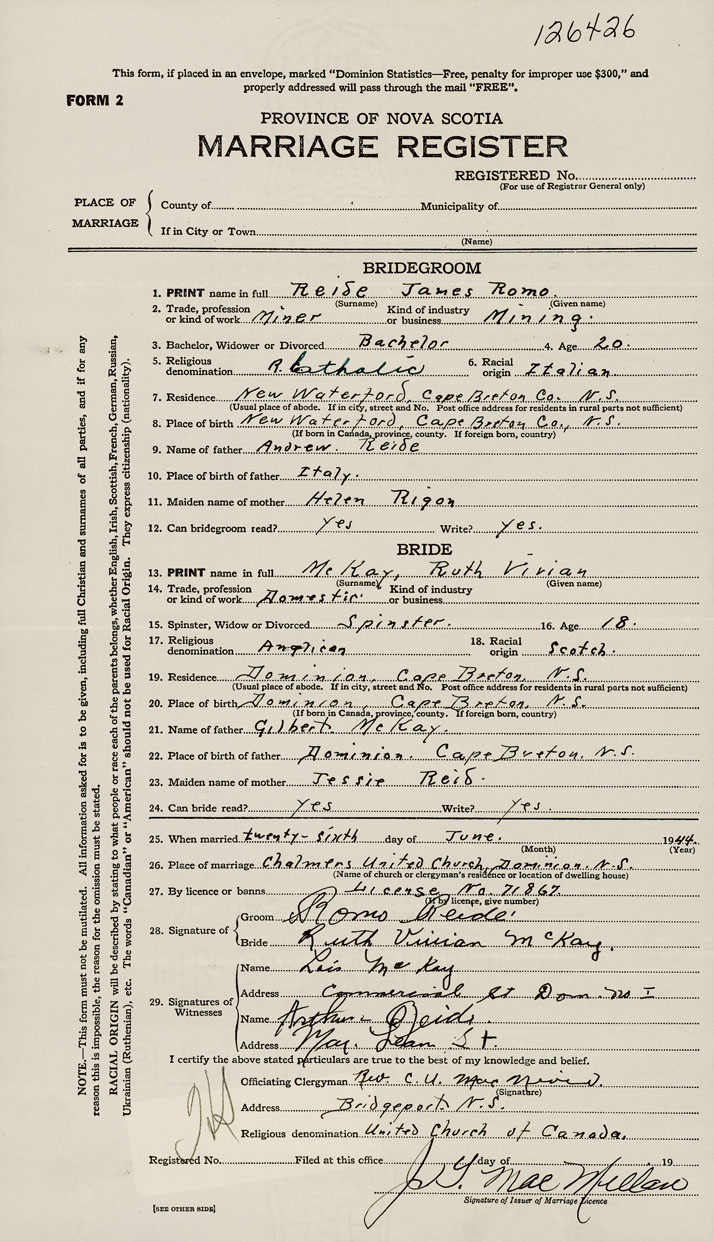 126426
This form, if placed in an envelope, marked "Dominion Statistics—Free, penalty for improper use $300," and
properly addressed will pass through the mail "FREE".
FORM 2
PROVINCE OF NOVA SCOTIA
MARRIAGE REGISTER
REGISTERED No.
(For use of Registrar General only)
PLACE OF MARRIAGE
County of Municipality of
If in City or Town
(Name)
BRIDEGROOM
1. PRINT name in full Reide James Romo.
(Surname) (Given name)
2. Trade, profession or kind of work Miner Kind of industry or business Mining.
3. Bachelor, Widower or Divorced Bachelor 4. Age 20.
5. Religious denomination R. Catholic 6. Racial origin Italian
7. Residence New Waterford, Cape Breton Co. N.S.
(Usual place of abode. If in city, street and No. Post office address for residents in rural parts not sufficient)
8. Place of birth New Waterford, Cape Breton Co., N.S.
(If born in Canada, province, county. If foreign born, country)
9. Name of father Andrew. Reide
10. Place of birth of father Italy.
11. Maiden name of mother Helen Rigon
12. Can bridegroom read? Yes Write? Yes.
BRIDE
13. PRINT name in full McKay, Ruth Vivian
(Surname) (Given name)
14. Trade, profession or kind of work Domestic Kind of industry or business
15. Spinster, Widow or Divorced Spinster. 16. Age 18.
17. Religious denomination Anglican 18. Racial origin Scotch.
19. Residence Dominion, Cape Breton, N.S.
(Usual place of abode. If in city, street and No. Post office address for residents in rural parts not sufficient)
20. Place of birth Dominion, Cape Breton, N.S.
(If born in Canada, province, county. If foreign born, country)
21. Name of father Gilbert McKay.
22. Place of birth of father Dominion. Cape Breton, N.S.
23. Maiden name of mother Jessie Reid.
24. Can bride read? Yes Write? Yes.
25. When married twenty-sixth day of June. 1944.
(Month) (Year)
26. Place of marriage Chalmers United Church, Dominion. N.S.
(Name of church or clergyman's residence or location of dwelling house)
27. By licence or banns License No. 71867
(If by licence, give number)
28. Signature of
Groom Romo Reide
Bride Ruth Vivian McKay.
29. Signatures of Witnesses
Name Lois McKay
Address Commercial St Dom. No I
Name Arthur Reid
Address St
I certify the above stated particulars are true to the best of my knowledge and belief.
Officiating Clergyman Rev. C. U. Mac
(Signature)
Address Bridgeport N.S.
Religious denomination United Church of Canada.
Registered No. Filed at this office day of 19
J. Mac Millan
Signature of Issuer of Marriage Licence
[SEE OTHER SIDE]
NOTE.—This form must not be mutilated. All information asked for is to be given, including full Christian and surnames of all parties, and if for any
reason this is impossible, the reason for the omission must be stated.
RACIAL ORIGIN will be described by stating to what people or race each of the parents belongs, whether English, Irish, Scottish, French, German, Russian,
Ukrainian (Ruthenian), etc. The words "Canadian" or "American" should not be used for Racial Origin. They express citizenship (nationality).